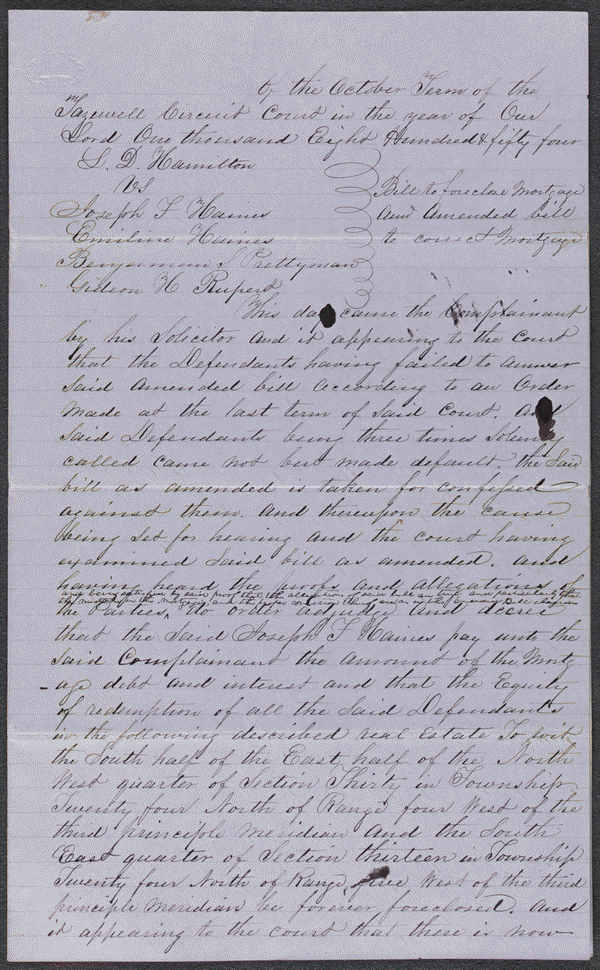 Of the October Term of the
Tazewell Circuit Court in the year of Our
Lord One thousand Eight Hundred & fifty four
L. D. Hamilton
VS
Joseph F Haines
Emiline Haines
Benjerman S Prettyman
Gideon H Rupert
Bill to foreclose Mortgage
and Amended bill
to correct Mortgage
This day came the Complainant
by his Solicitor and it appearing to the court
that the Defendants having failed to answer
Said Amended bill according to an Order
Made at the last term of Said Court. And
Said Defendants being three times Solemly
called came not but made default. the Said
bill as amended is taken for confessed
against them. And thereupon the cause
being Set for hearing and the court having
examined Said bill as amended. and
having heard the proofs and allegations of
and being satisfied by said proof that the allegations of said bill are true and particularly that
the mistake in the mortgage and the
the Parties, do order adjudge and decree
that the Said Joseph F Haines pay unto the
Said Complainant the amount of the Mortg
-age debt and interest and that the Equity
of redemption of all the Said Defendants
in the following described real Estate To wit
the South half of the East half of the North
West quarter of Section Thirty in Township
Twenty four North of Range four West of the
third principle meridian and the South
East quarter of Section thirteen in Township
Twenty four North of Range five West of the third
principle meridian be forever foreclosed. And
it appearing to the court that there is now